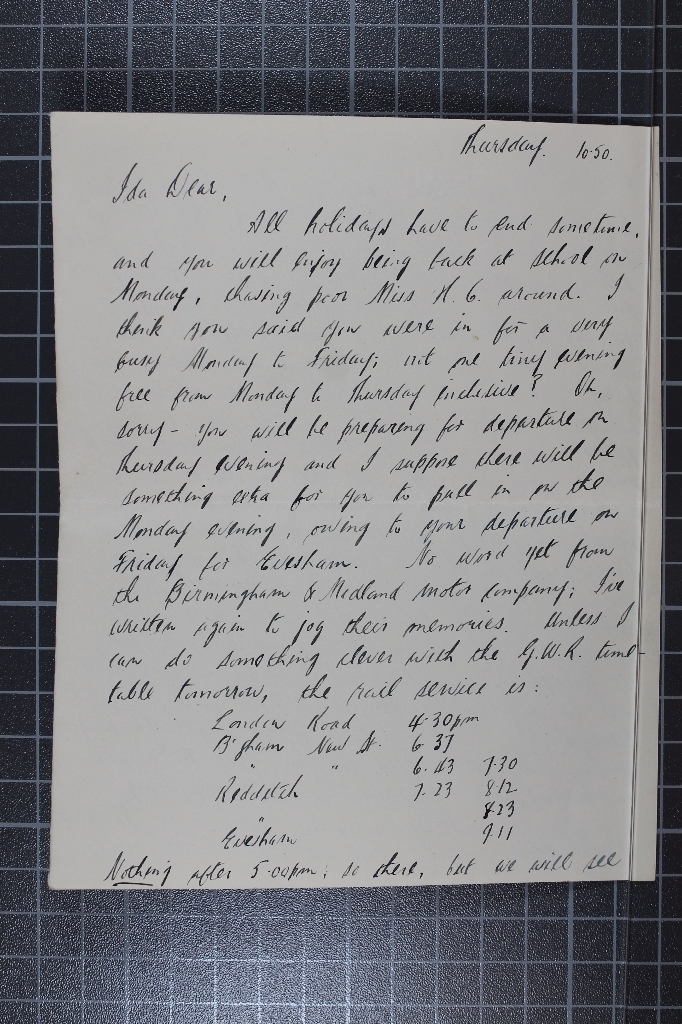 Thursday. 10.50.
Ida Dear,
All holidays have to end sometime,
and you will enjoy being back at school on
Monday, chasing poor Miss H. G. around. I
think you said you were in for a very
busy Monday to Friday; not one tiny evening
free from Monday to Thursday inclusive? Oh,
sorry - you will be preparing for departure on
Thursday evening and I suppose there will be
something extra for you to pull in on the
Monday evening, owing to your departure on
Friday for Evesham. No word yet from
the Birmingham & Midland motor company; I've
written again to jog their memories. Unless I
can do something clever with the G.W.R. time-
table tomorrow, the rail service is:
London Road 4.30pm
B'gham New St. 6.37
" " 6.43 7.30
Redditch 7.23 8.12
" 8.23
Evesham 9.11
Nothing after 5.00pm; so there, but we will see